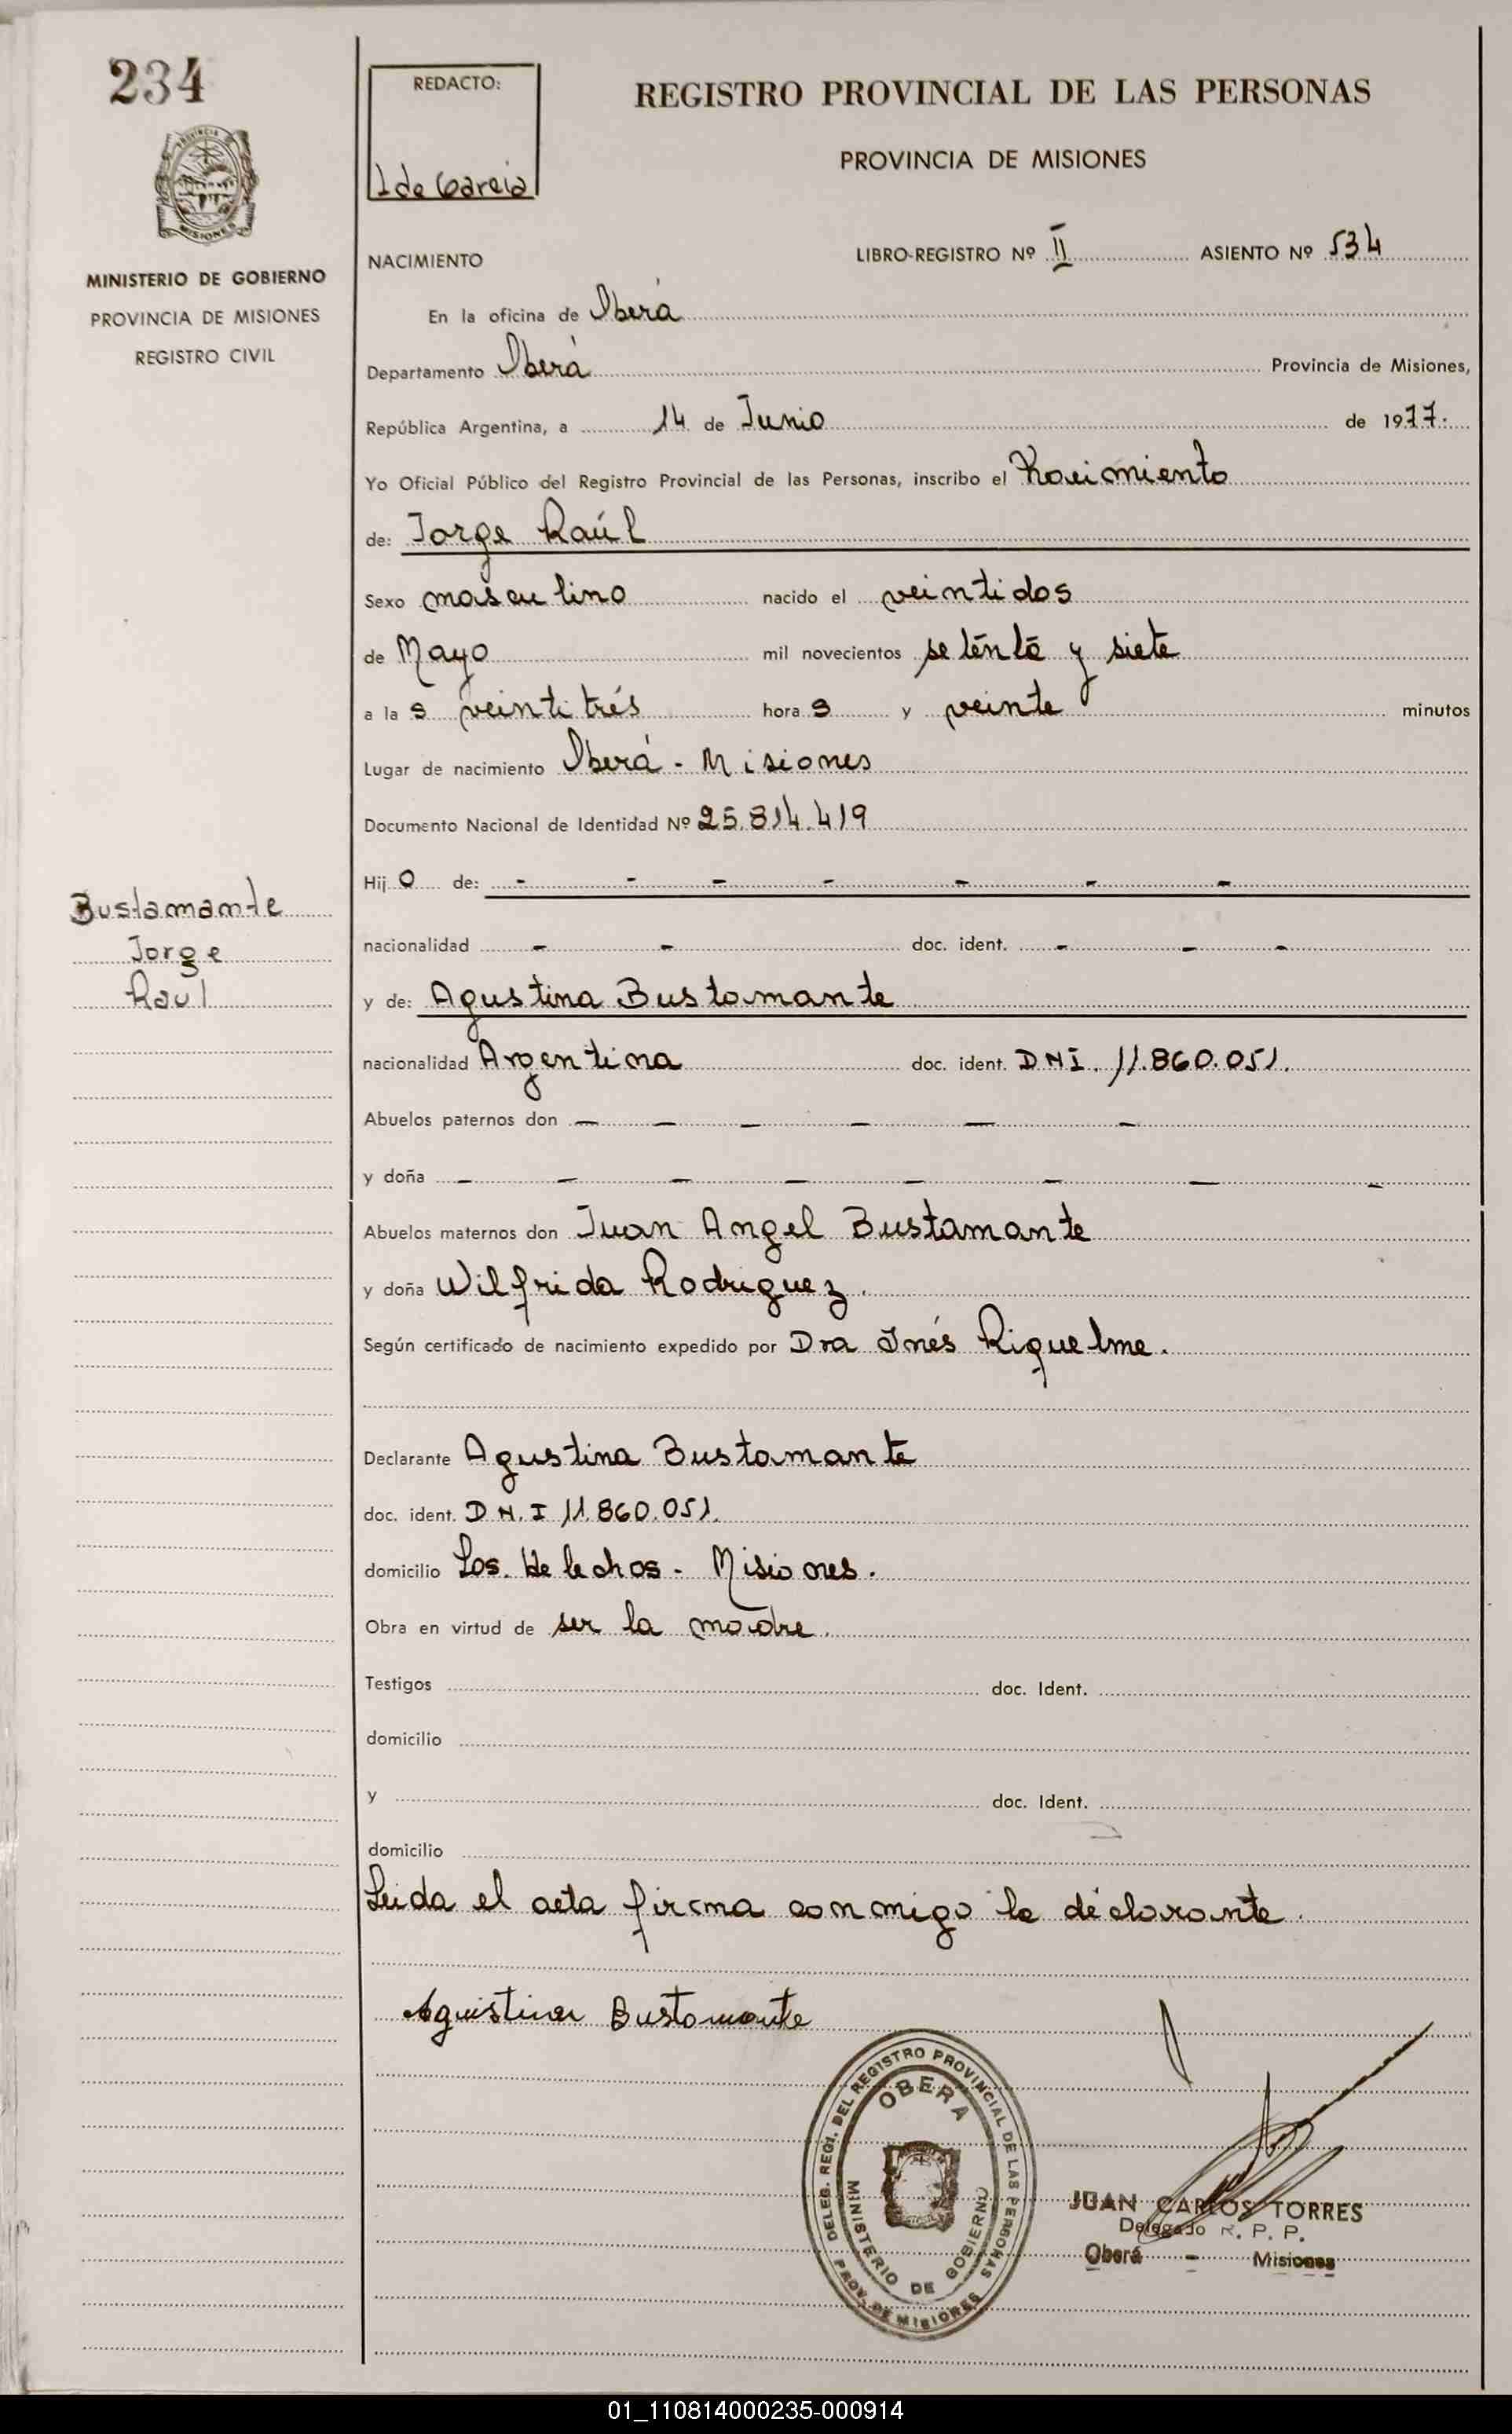 234
REDACTO:
I de Garcia
REGISTRO PROVINCIAL DE LAS PERSONAS
PROVINCIA DE MISIONES
MINISTERIO DE GOBIERNO
PROVINCIA DE MISIONES
REGISTRO CIVIL
NACIMIENTO LIBRO-REGISTRO Nº II ASIENTO Nº 534
En la oficina de Oberá
Departamento Oberá Provincia de Misiones,
República Argentina, a 14 de Junio de 1977.
Yo Oficial Público del Registro Provincial de las Personas, inscribo el Nacimiento
de: Jorge Raúl
Sexo masculino nacido el veintidos
de Mayo mil novecientos setenta y siete
a la s veintitrés hora s y veinte minutos
Lugar de nacimiento Oberá - Misiones
Documento Nacional de Identidad Nº 25.814.419
Hij o de: - - - - - - -
nacionalidad - - doc. ident. - - -
Bustamante
Jorge
Raul
y de: Agustina Bustamante
nacionalidad Argentina doc. ident. DNI. 11.860.051.
Abuelos paternos don - - - - - -
y doña - - - - - - - -
Abuelos maternos don Juan Angel Bustamante
y doña Wilfrida Rodriguez.
Según certificado de nacimiento expedido por Dra Inés Riquelme.
Declarante Agustina Bustamante
doc. ident. D.N.I 11.860.051.
domicilio Los Helechos - Misiones.
Obra en virtud de ser la madre.
Testigos doc. Ident.
domicilio
y doc. Ident.
domicilio
Leida el acta firma conmigo la declarante.
Agustina Bustamante
DELEG. REGI. DEL REGISTRO PROVINCIAL DE LAS PERSONAS
OBERA
MINISTERIO DE GOBIERNO
PROV. DE MISIONES
JUAN CARLOS TORRES
Delegado R. P. P.
Oberá - Misiones
01_110814000235-000914